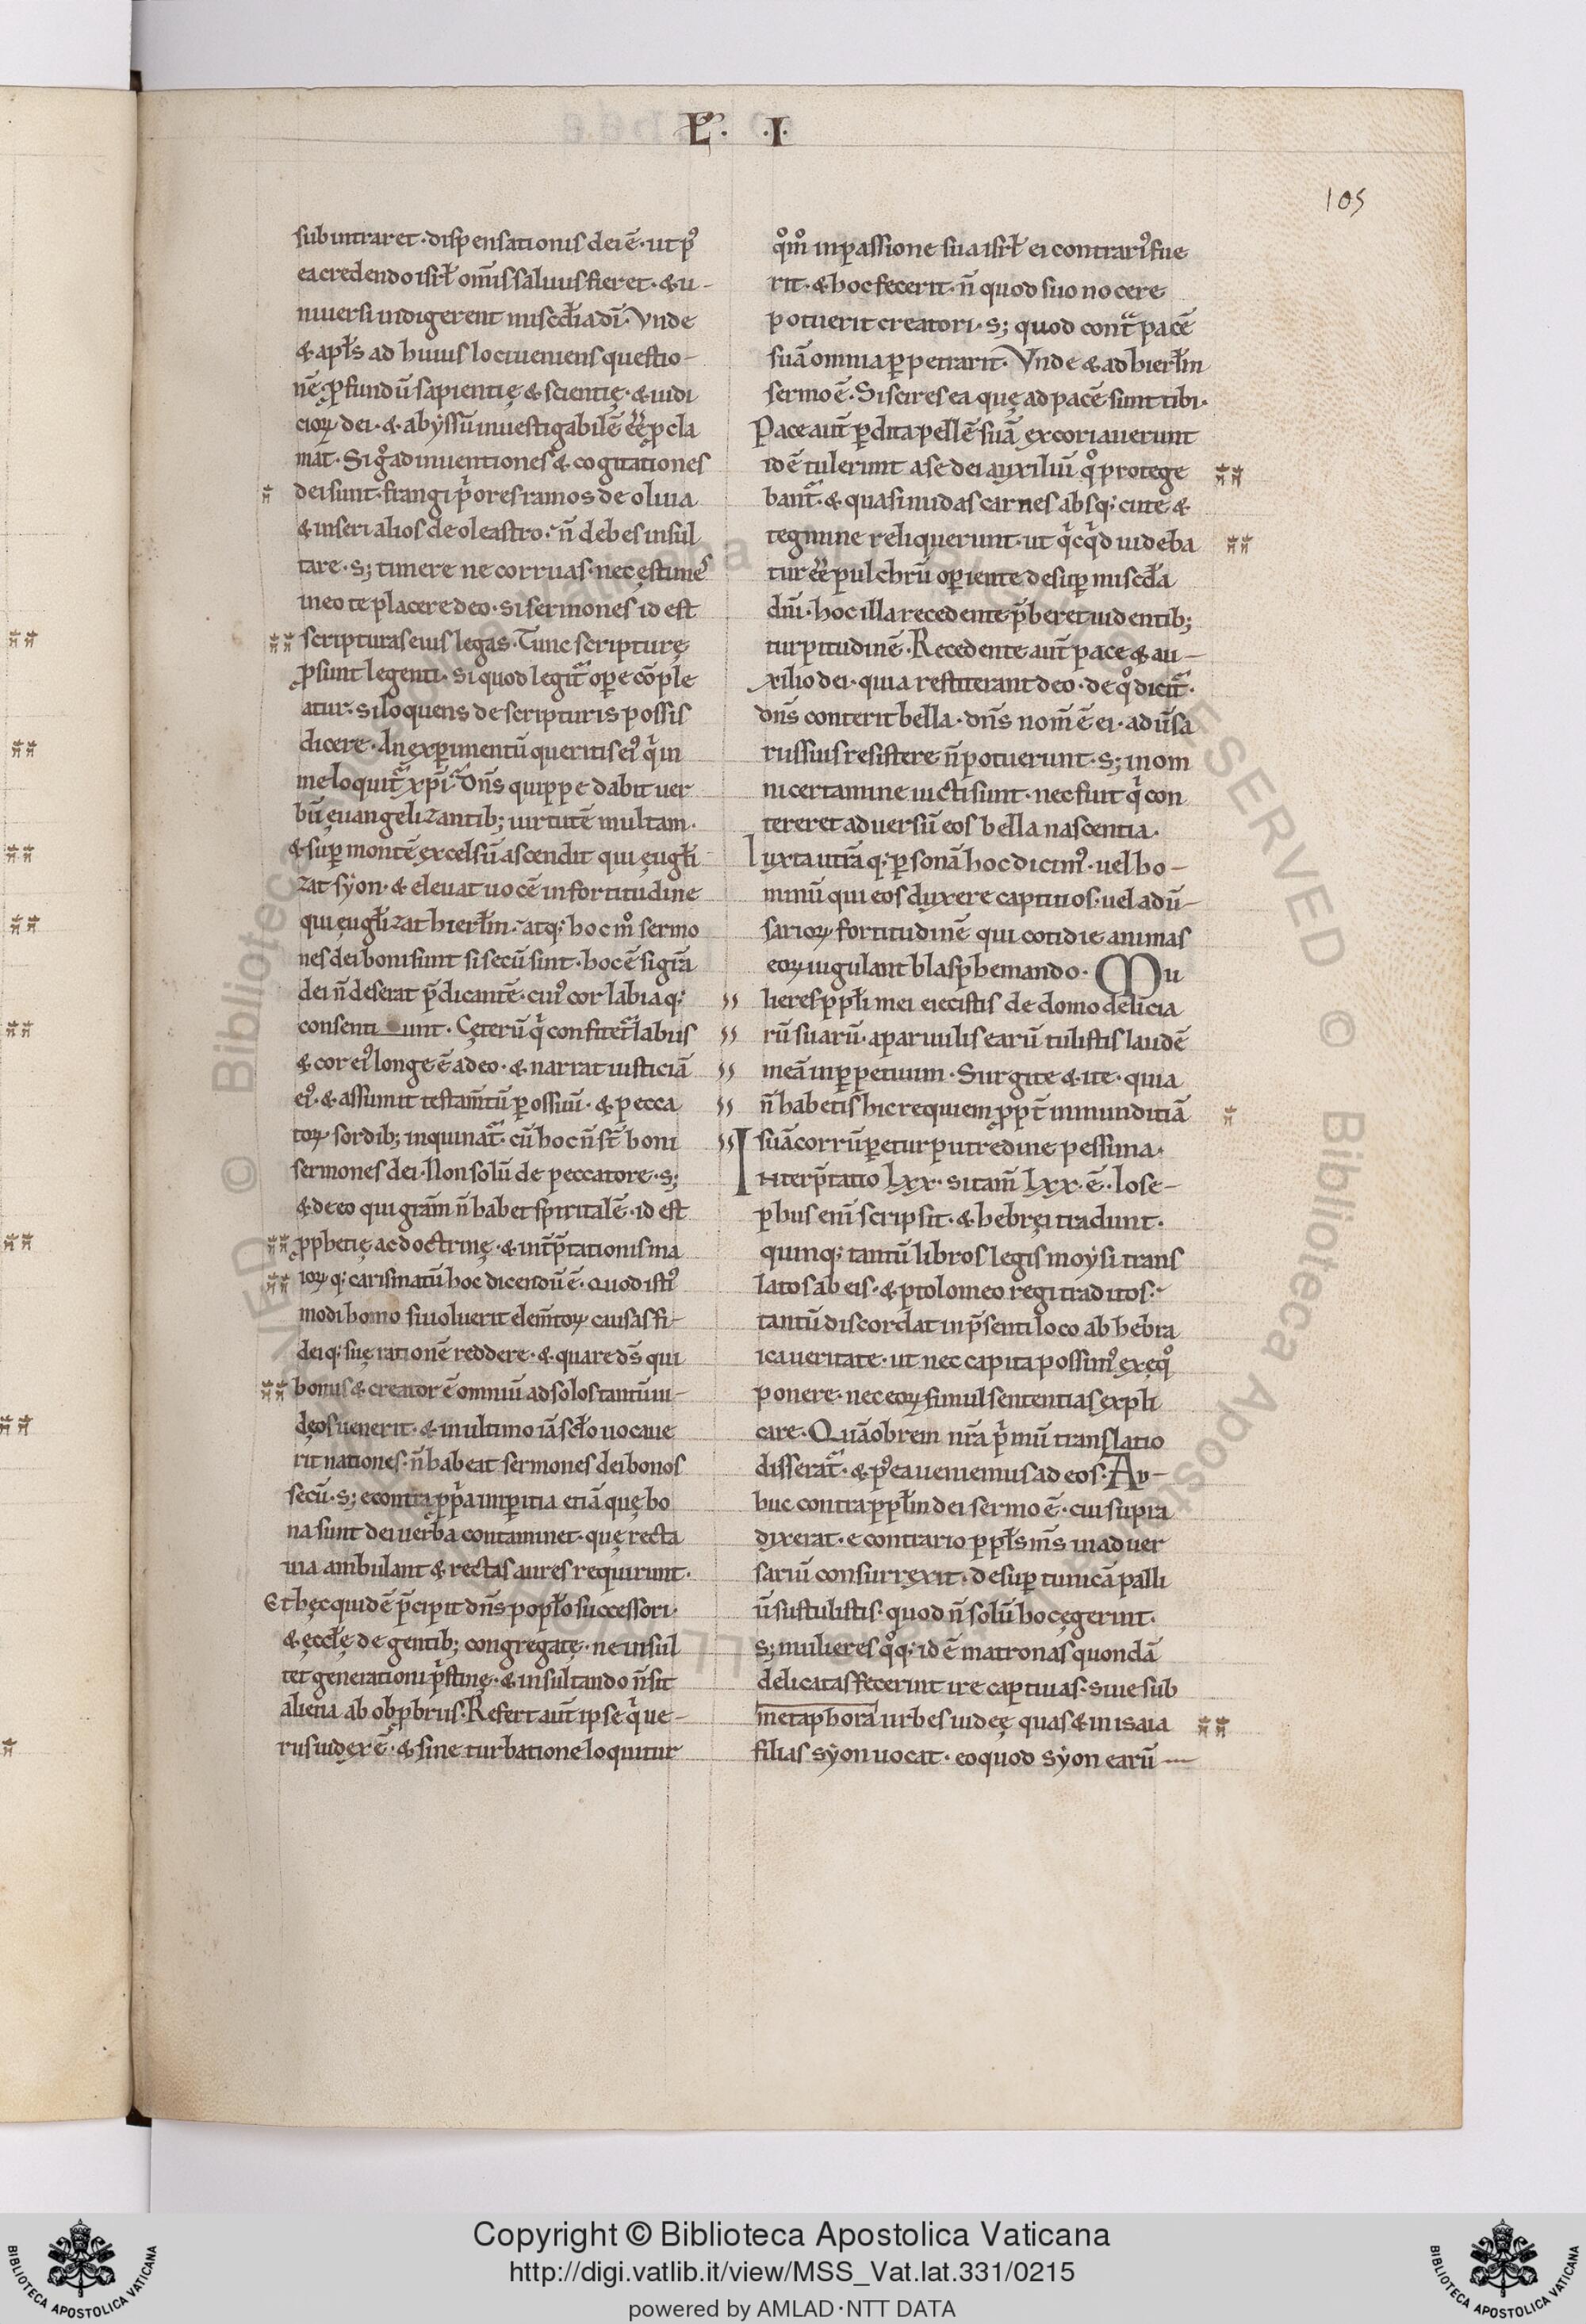 L̄. .I.
105
subintraret· dispensationis dei ē· ut pꝰ
ea credendo isrł om̄s saluus fieret· & u-
niuersi indigerent misc̄dia dī· Vnde
& apłs ad huius loci ueniens questio-
nē· ꝓfundū sapientię & scientię· & iudi
cioꝝ dei· & abyssū inuestigabilē eē̄ ꝓcla
mat· Si gͦ adinuentiones & cogitationes
dei sunt· frangi pͥores ramos de oliua
& inseri alios de oleastro· n̄ debes insul
tare· s; timere ne corruas· nec ęstimes
in eo te placere deo· si sermones id est
scripturas eius legas· Tunc scripturę
ꝓsunt legenti· si quod legit᷑ ope cōple
atur· si loquens de scripturis possis
dicere· An exꝑimentū queritis eiꝰ qͥ in
me loquit᷑ xpī· Dn̄s quippe dabit uer
bū euangelizantib; uirtutē multam·
& suꝑ montē excelsū ascendit qui eugłi
zat syon· & eleuat uocē in fortitudine
qui eugłizat hierłm· atq; hoc mͦ sermo
nes dei boni sunt si secū sint· hoc ē si gr̄a
dei n̄ deserat p̄dicantē· cuiꝰ cor labiaq;
consenti unt· Cęterū qͥ confitet᷑ labiis
& cor eiꝰ longe ē a deo· & narrat iusticiā
eiꝰ· & assumit testam̄tū ꝑ os suū· & pecca
toꝝ sordib; inquinat᷑· cū hoc n̄ st̄ boni
sermones dei· Non solū de peccatore· s;
& de eo qui grām n̄ habet spiritalē· id est
ꝓphetię ac doctrinę· & int̄p̄tationis ma
ioꝝq; carismatū hoc dicendū ē· Quod istiꝰ
modi homo si uoluerit elem̄toꝝ causas fi-
deiq; suę rationē reddere· & quare ds̄ qui
bonus & creator ē omniū ad solos tantū iu-
dęos uenerit· & in ultimo iā scło uocaue
rit nationes· n̄ habeat sermones dei bonos
secū· s; econtra ꝓpͥa inꝑitia etiā quę bo
na sunt dei uerba contaminet· quę recta
uia ambulant & rectas aures requirunt·
Et hęc quidē p̄cipit dn̄s popło successori·
& ęccłę de gentib; congregatę· ne insul
tet generationi pͥstinę· & insultando n̄ sit
aliena ab obꝓbriis· Refert aut̄ ipse qͥ ue-
rus iudex ē· & sine turbatione loquitur
qͦmͦ in passione sua isrł ei contrariꝰ fue
rit· & hoc fecerit· n̄ quod suo nocere
potuerit creatori· s; quod cont̄ pacē
suā omnia ꝑpetrarit· Vnde & ad hierłm
sermo ē· Si scires ea quę ad pacē sunt tibi·
Pace aut̄ ꝑdita pellē suā excoriauerunt
id ē tulerunt a se dei auxiliū qͦ protege
bant᷑· & quasi nudas carnes absq; cute &
tegmine reliquerunt· ut qͥcqͥd uideba
tur eē̄ pulchrū oꝑiente desuꝑ misc̄da
dīu· hoc illa recedente p̄beret uidentib;
turpitudinē· Recedente aut̄ pace & au-
xilio dei· quia restiterant deo· de qͦ dicit᷑·
dn̄s conterit bella· dn̄s nom̄ ē ei· adūsa
rus suis resistere n̄ potuerunt· s; in om
ni certamine uicti sunt· nec fuit qͥ con
tereret aduersū eos bella nascentia·
Iuxta utrāq; ꝑsonā hoc dicimꝰ· uel ho-
minū qui eos duxere captiuos· uel adū-
sarioꝝ fortitudinē qui cotidie animas
eoꝝ iugulant blasphemando· Mu
lieres ppłi mei eiecistis de domo delicia
rū suarū· a paruulis earū tulistis laudē
meā in ꝑpetuum· Surgite & ite· quia
n̄ habetis hic requiem· ꝓpt̄ inmunditiā
suā corrūpetur putredine pessima·
Interp̄tatio Lxx· si tam̄ Lxx· ē· Iose-
phus enī scripsit· & hebręi tradunt·
quinq; tantū libros legis moysi trans
latos ab eis· & ptolomeo regi traditos·
tantū discordat in p̄senti loco ab hebra
ica ueritate· ut nec capita possimꝰ ex ęqͦ
ponere· nec eoꝝ simul sententias expli
care· Quāobrem nr̄a pͥmū translatio
disserat᷑· & pꝰea ueniemus ad eos· Ad-
huc contra ppłm dei sermo ē· cui supra
dixerat· e contrario ppłs m̄s in aduer
sariū consurrexit· desuꝑ tunicā palli
ū sustulistis· quod n̄ solū hoc ęgerint·
s; mulieres qͦq; id ē matronas quondā
delicatas fecerint ire captiuas· siue sub
metaphora urbes iudeę quas & in isaia
filias syon uocat· eo quod syon earū
Copyright © Biblioteca Apostolica Vaticana
http://digi.vatlib.it/view/MSS_Vat.lat.331/0215
powered by AMLAD·NTT DATA
BIBLIOTECA APOSTOLICA VATICANA
BIBLIOTECA APOSTOLICA VATICANA